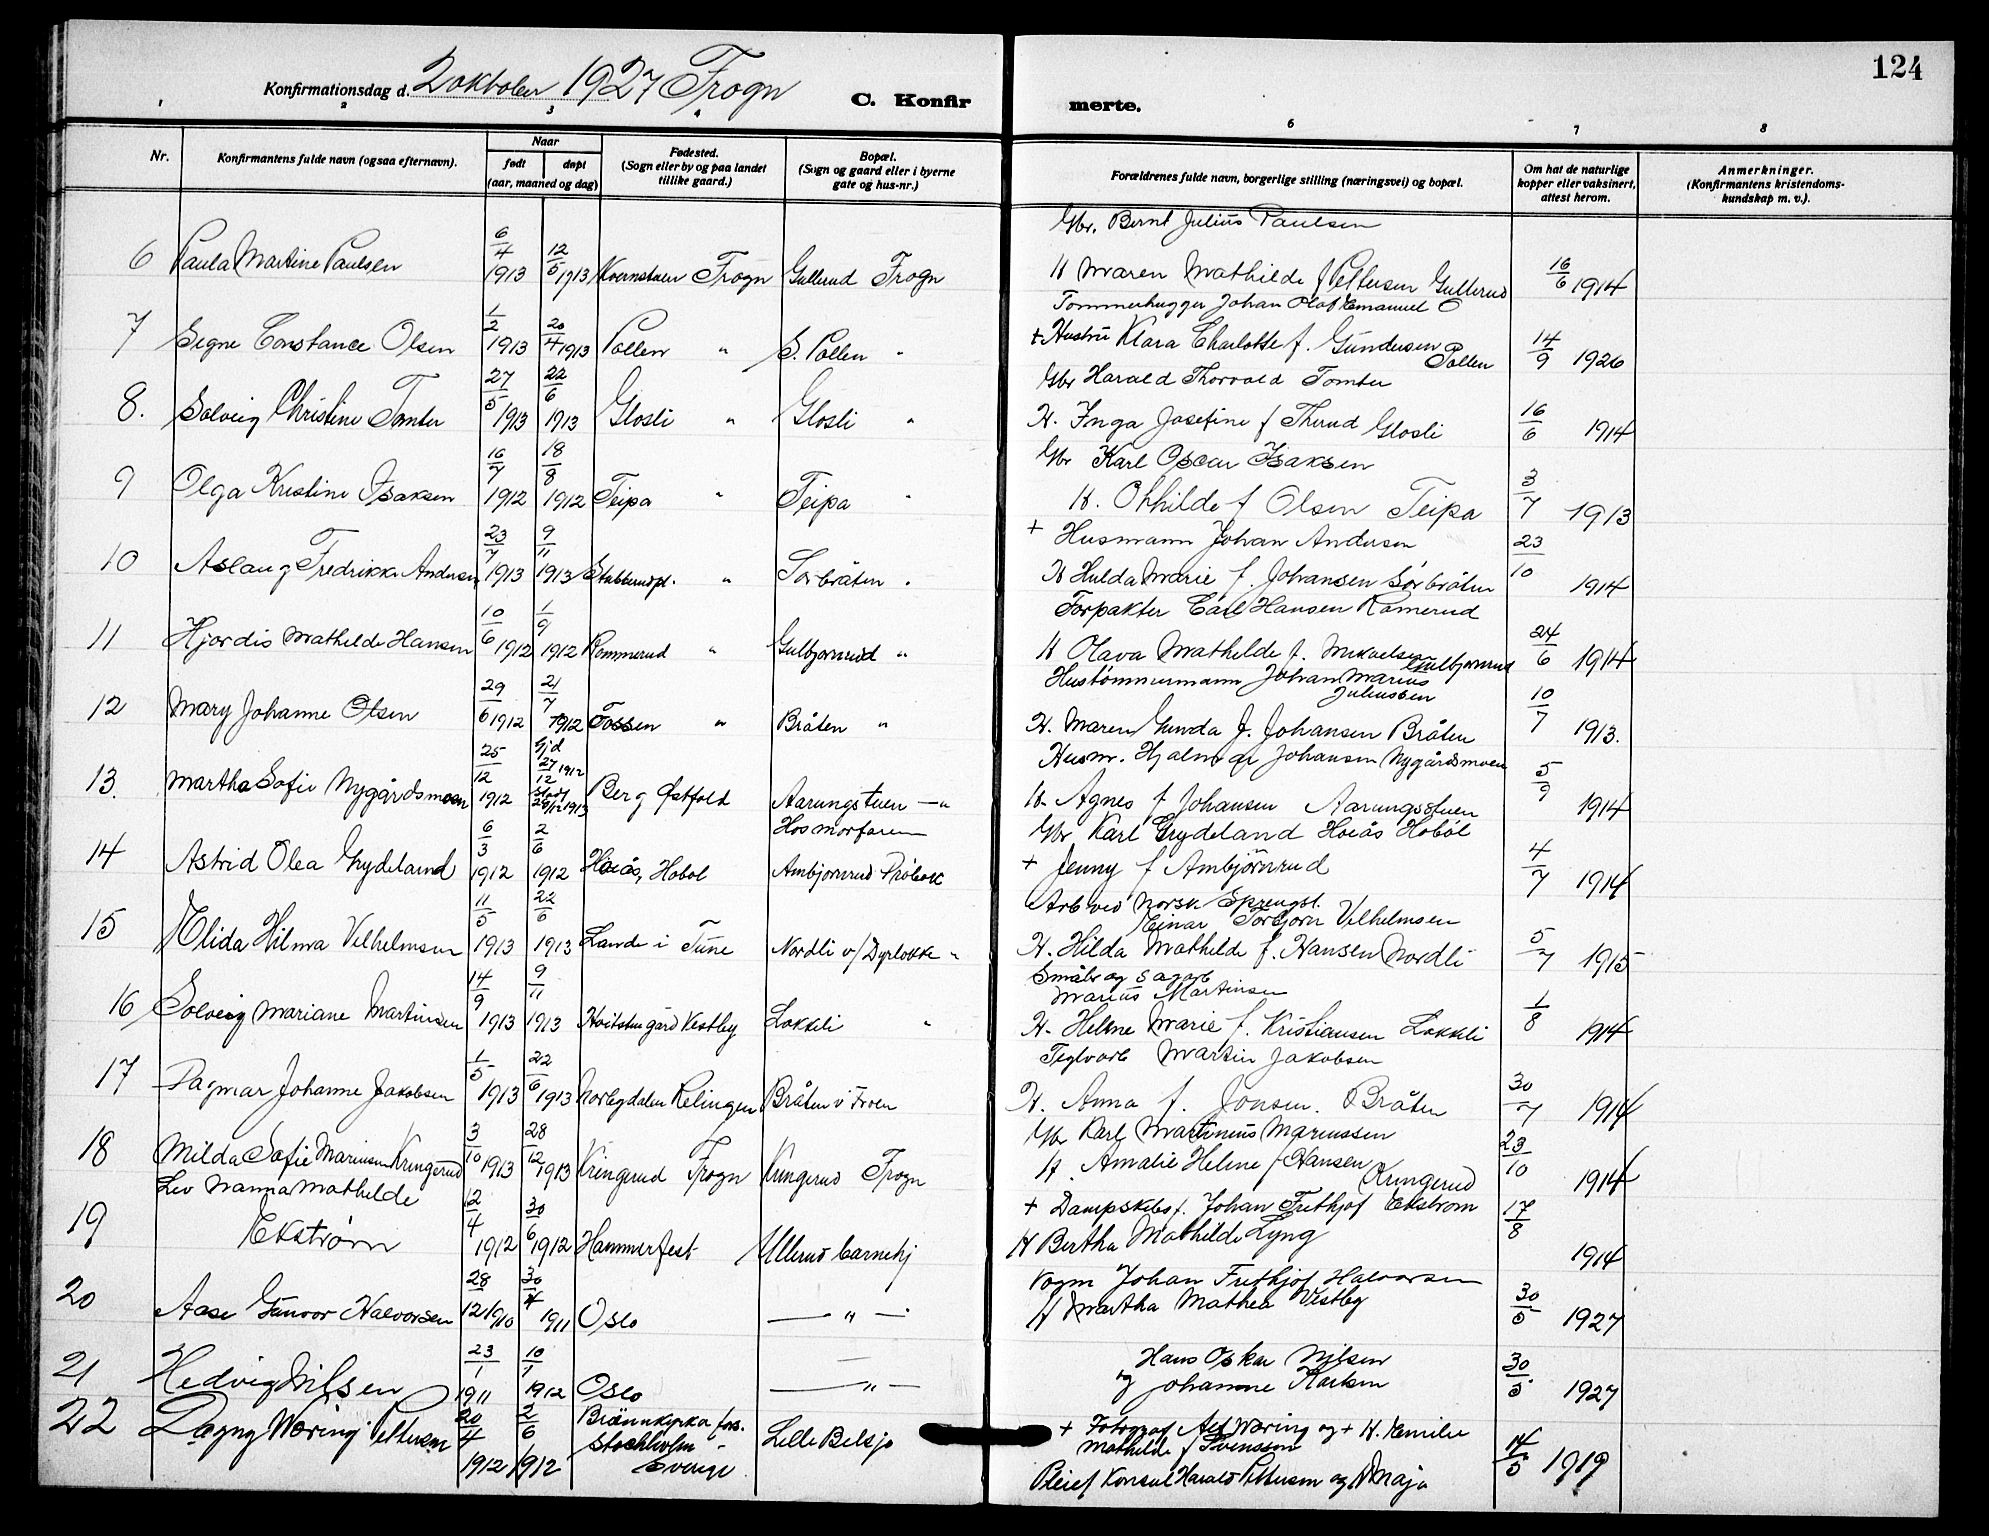 124
Konfirmationsdag d. 2 oktober 1927 Frogn C. Konfir merte.
1 2 3 4 6 7 8
Nr. Konfirmantens fulde navn (ogsaa efternavn). Naar født døpt (aar, maaned og dag) Fødested. (Sogn eller by og paa landet tillike gaard.) Bopæl. (Sogn og gaard eller i byerne gate og hus-nr.) Forældrenes fulde navn, borgerlige stilling (næringsvei) og bopæl. Om hat de naturlige kopper eller vaksinert, attest herom. Anmerkninger. (Konfirmantens kristendoms-kundskap m. v.).
Gbr. Bernt Julius Paulsen
6 Paula Martine Paulsen 6/4 1913 12/5 1913 Frogn Gullerud Frogn H Maren Mathilde f Pettersen Gullerud 16/6 1914
Tømmerhugger Johan Olaf Emanuel O
7 Signe Constance Olsen 1/2 1913 20/4 1913 Pollen " S. Pollen " + Hustru Klara Charlotte f. Gundersen Pollen 14/9 1926
Gbr Harald Thorvald Tomter
8. Solveig Christine Tomter 27/5 1913 22/6 1913 Glosli " Glosli " H. Inga Josefine f Thrud Glosli 16/6 1914
Gbr Karl Oscar Isaksen
9 Olga Kristine Isaksen 16/7 1912 18/8 1912 Teipa " Teipa " H. Othilde f Olsen Teipa 3/7 1913
+ Husmann Johan Andersen
10 Aslaug Fredrikke Andersen 23/7 1913 9/11 1913 Stubberudpl. " Sørbråten " H Hulda Marie f. Johansen Sørbråten 23/10 1914
Forpakter Carl Hansen Romerud
11 Hjørdis Mathilde Hansen 10/6 1912 1/9 1912 Rommerud " Gulbjørnrud " H Olava Mathilde f. Mikaelsen Gulbjørnrud 24/6 1914
Hustømmermann Johan Marius Juliussen
12 Mary Johanne Olsen 29/6 1912 21/7 1912 Fossen " Bråten " H. Maren Gunda f. Johansen Bråten 10/7 1913.
Husm. Hjalmar Johansen Nygårdsmoen
13. Martha Sofie Nygårdsmoen 25/12 1912 Hjd 27/12 1912 stadf 1913 Berg Østfold Aarungstuen —" H. Agnes f Johansen Aarungstuen 5/9 1914
Hos morfaren Gbr Karl Grydeland Hoiås Hobøl
14 Astrid Olea Grydeland 6/3 1912 2/6 1912 Hoiås, Hobøl Ambjørnrud Drøbak + Jenny f Ambjørnrud 4/7 1914
Arb ved Norsk Sprengst.
Einar Torbjørn Vilhelmsen
15 Elida Hilma Vilhelmsen 11/5 1913 22/6 1913 Lande i Tune Nordli v/ Dyrløkke " H. Hilda Mathilde f. Hansen Nordli 5/7 1915
Småbr og sagarb
Marius Martinsen
16 Solveig Mariane Martinsen 14/9 1913 9/11 1913 Vestby Løkkeli " H. Helene Marie f. Kristiansen Løkkeli 1/8 1914
Teglvarb Martin Jakobsen
17 Dagmar Johanne Jakobsen 1/5 1913 22/6 1913 Norbydalen Relingen Bråten v Froen H. Anna f. Jonsen. Bråten 30/7 1914
Gbr Karl Martinius Mariussen
18 Milda Sofie Mariussen Kringerud 3/10 1913 28/12 1913 Kringerud Frogn Kringerud Frogn H. Amalie Helene f Hansen Kringerud 23/10 1914
Liv Nanna Mathilde + Dampskibsf. Johan Frithjof Ekstrøm
19 Ekstrøm 2/4 1912 30/6 1912 Hammerfest Ullerud barnehj H Bertha Mathilde Lyng 17/8 1914
Vogm Johan Frithjof Halvorsen
20 Aase Gunvor Halvorsen 28/12 1910 30/4 1911 Oslo — " — H Martha Mathea Vestby 30/5 1927
Hans Oskar Nilsen
21 Hedvig Nilsen 23/1 1911 10/1 1912 Oslo — " — og Johanne Karlsen 30/5 1927
22 Dagny Wæring Pettersen 20/4 1912 2/6 1912 Brännkyrka førs. Lille Belsjø + Fotograf Alf Wæring og + H. Kamilie
Stockholm Mathilde f Svensson 14/5 1919
Sverige Pleief Konsul Harald Pettersen og H Maja